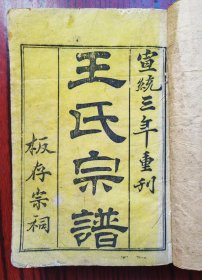 宣統三年重刊
王氏宗譜
板存宗祠